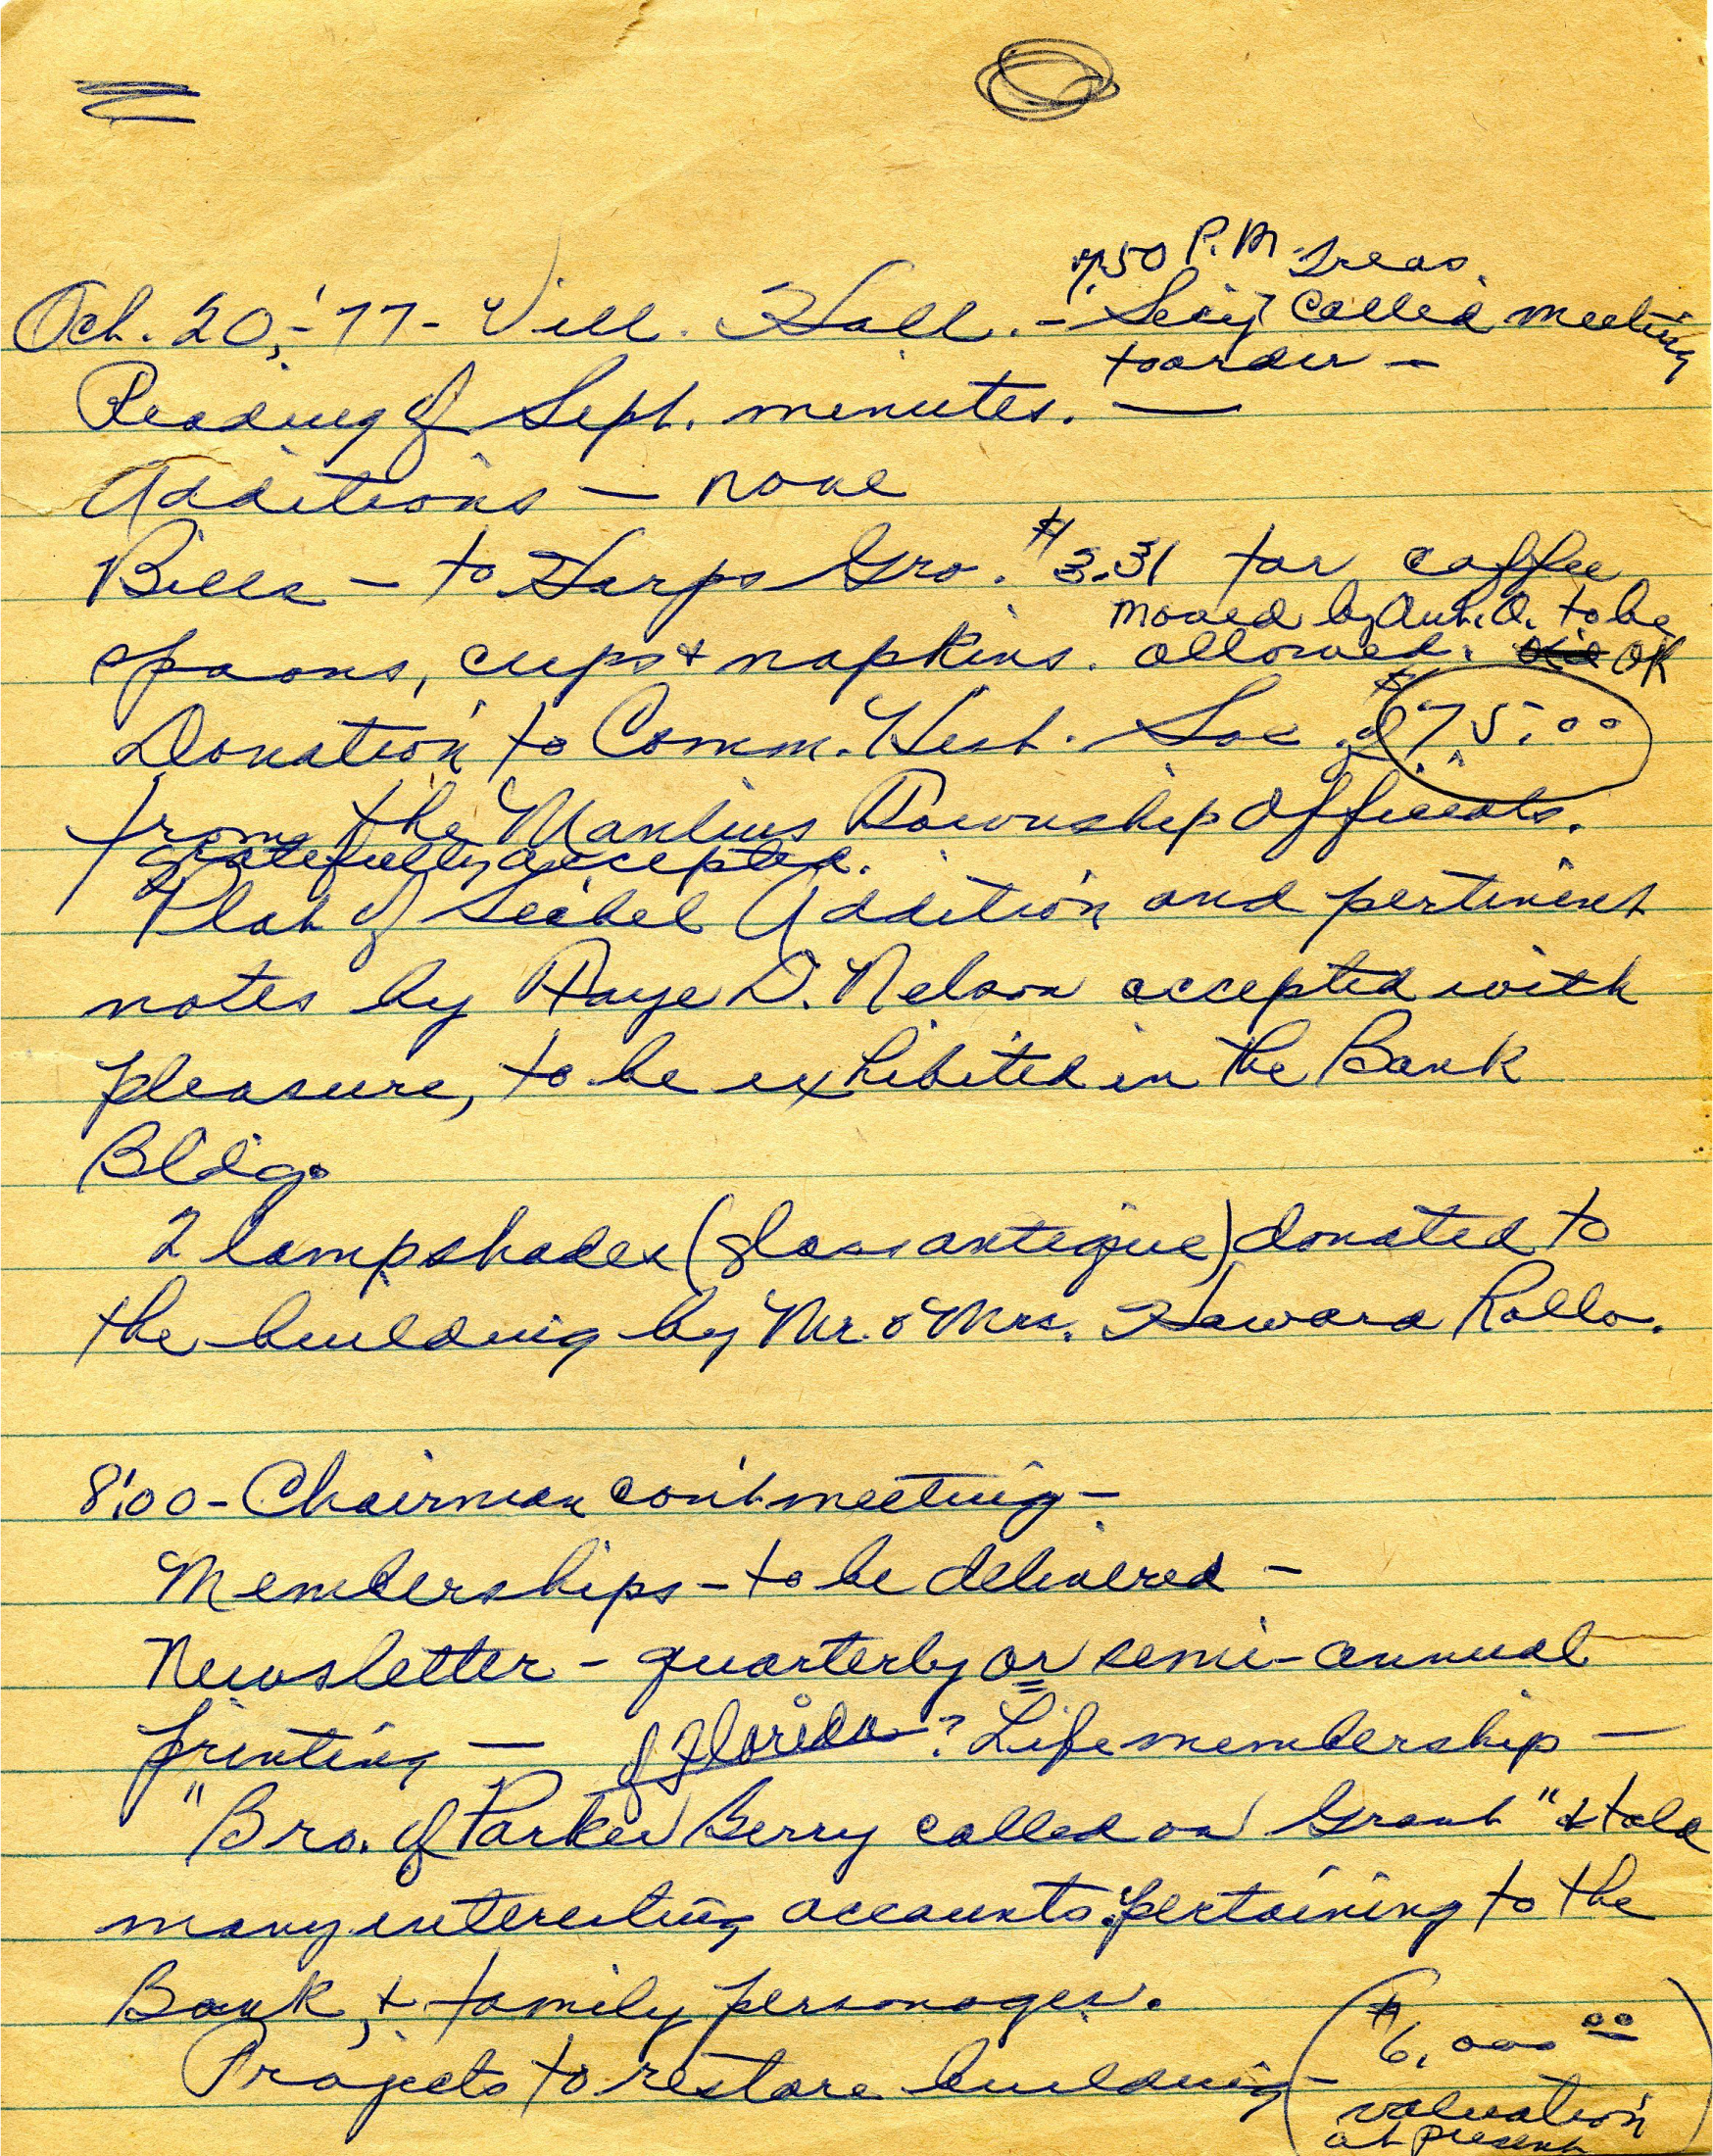 7:50 P.M. Treas.
Oct. 20, - '77 - Vill. Hall. - Sec'y called meeting
to order -
Reading of Sept. minutes. —
Additions — none
Bills — to Harps Gro. $3.31 for coffee
moved by Aut. O. to be
spoons, cups & napkins. allowed. OK
Donation to Comm. Hist. Soc. of $75.00
from the Manlius Township officials.
gratefully accepted.
Plat of Seibel Addition and pertinent
notes by Faye D. Nelson accepted with
pleasure, to be exhibited in the Bank
Bldg.
2 lampshades (glass antique) donated to
the building by Mr. & Mrs. Howard Rollo.
8:00 - Chairman con't meeting -
Memberships - to be delivered -
Newsletter - quarterly or semi-annual
printing — of Florida? Life membership —
"Bro. of Parker Berry called on Grant" & told
many interesting accounts pertaining to the
Bank, & family personages.
Projects to restore building - ($6,000.00
valuation
at present)